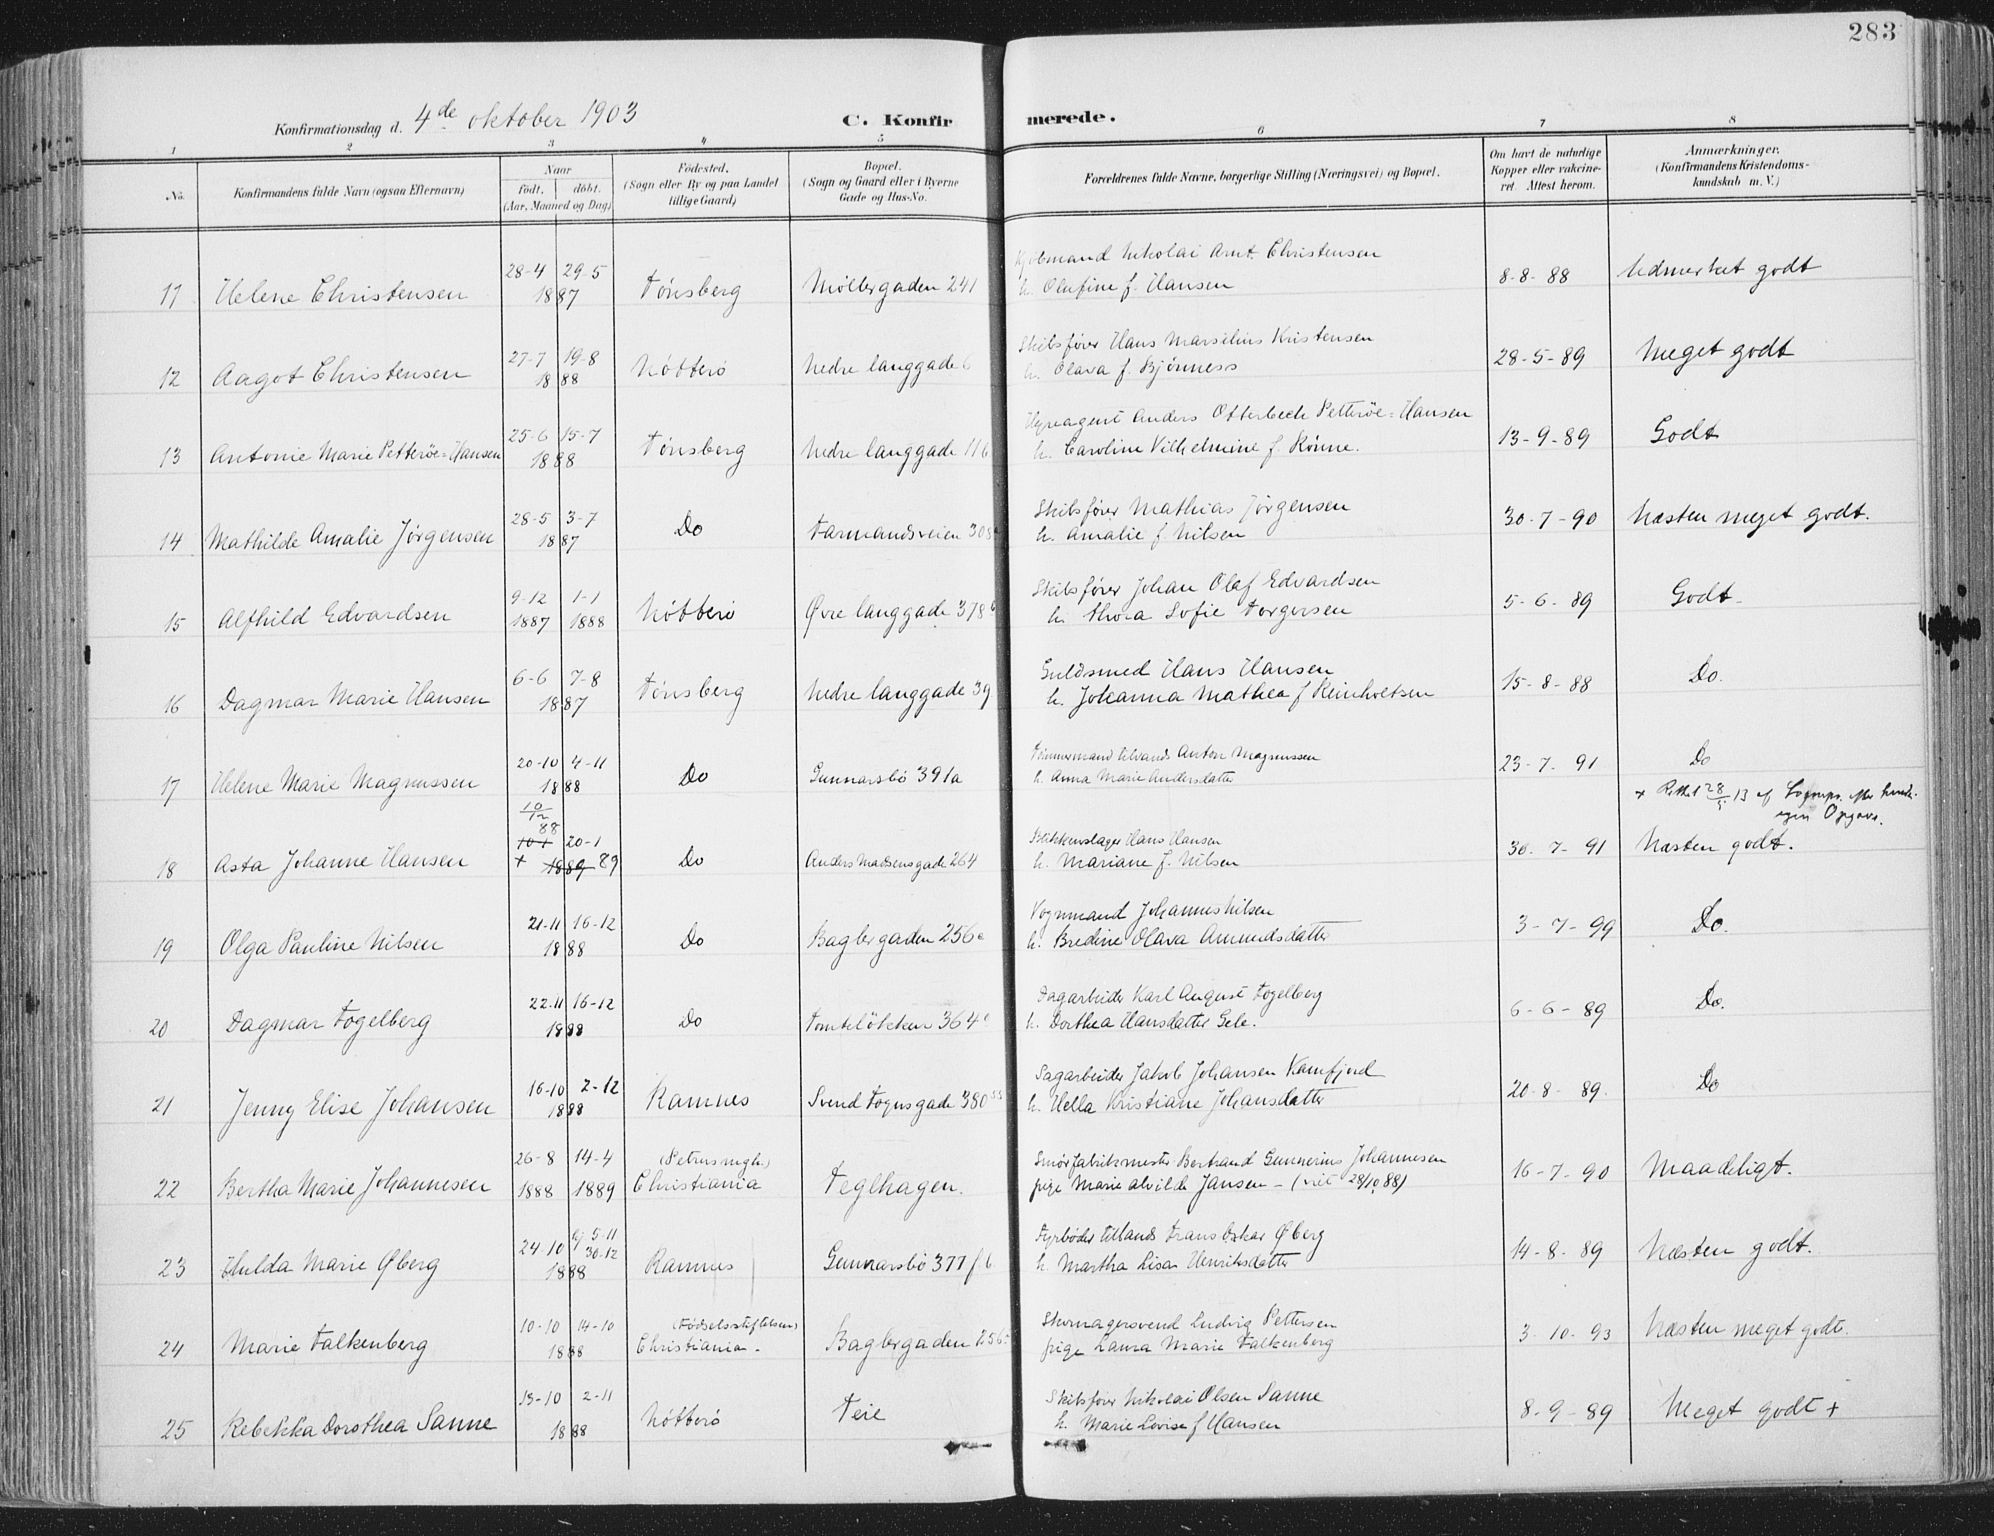 283
Konfirmationsdag d. 4de oktober 1903
C. Konfirmerede.
1 2 3 4 5 6 7 8
No. Konfirmandens fulde Navn (ogsaa Efternavn) Naar født. døbt. (Aar, Maaned og Dag) Fødested. (Sogn eller By og paa Landet tillige Gaard) Bopæl. (Sogn og Gaard eller i Byerne Gade og Hus-No. Forældrenes fulde Navne, borgerlige Stilling (Næringsvei) og Bopæl. Om havt de naturlige Kopper eller vakcineret. Attest herom. Anmærkninger. (Konfirmandens Kristendomskundskab m. V.)
11 Helene Christensen 28-4 29-5 1887 Tönsberg Möllergaden 241 Kjöbmand Nikolai Arnt Christensen h. Olufine f. Hansen 8-8-88 Udmerket godt
12 Aagot Christensen 27-7 19-8 1888 Nötterö Nedre langgade 6 Skibsfører Hans Marselius Kristensen h. Olava f. Bjönness 28-5-89 Meget godt
13 Antonie Marie Petterøe-Hansen 25-6 15-7 1888 Tönsberg Nedre langgade 116 Hyreagent Anders Otterbech Petterøe-Hansen h. Caroline Vilhelmine f. Rønne. 13-9-89 Godt
14 Mathilde Amalie Jörgensen 28-5 3-7 1887 Do Farmandsveien 308 Skibsfører Mathias Jörgensen h. Amalie f Nilsen 30-7-90 Næsten meget godt.
15 Alfhild Edvardsen 9-12 1887 1-1 1888 Nötterö Øvre langgade 378 b Skibsfører Johan Olaf Edvardsen h. Thora Sofie Torgersen 5-6-89 Godt
16 Dagmar Marie Hansen 6-6 7-8 1887 Tönsberg Nedre langgade 39 Guldsmed Hans Hansen h. Johanna Mathea f Reinholtsen 15-8-88 Do.
17 Helene Marie Magnussen 20-10 4-11 1888 Do Gunnarsbö 391a Tömmermand tilvands Anton Magnussen h. Anna Marie Andersdatter 23-7-91 Do
+ Rettet 28/5 13 af Sognepr. efter hendes egen Opgave.
18 Asta Johanne Hansen 10/12 88 10-1 20-1 + 1889 89 Do Anders Madsensgade 264 Blikkenslager Hans Hansen h. Mariane f. Nilsen 30-7-91 Næsten godt.
19 Olga Pauline Nilsen 21-11 16-12 1888 Do Baglergaden 256 c Vognmand Johannes Nilsen h. Bredine Olava Amundsdatter 3-7-99 Do.
20 Dagmar Fogelberg 22-11 16-12 1888 Do Tomtelökken 364 Dagarbeider Karl August Fogelberg h. Dorthea Hansdatter Gele. 6-6-89 Do.
21 Jenny Elise Johansen 16-10 2-12 1888 Ramnes Svend Foynsgade 380 Sagarbeider Jakob Johansen Kamfjord h. Hella Kristiane Johansdatter 20-8-89. Do
22 Bertha Marie Johannesen 26-8 1888 14-4 1889 (Petrus mgh.) Christiania Teglhagen. Smörfabrikmester Bertrand Gunnerius Johannesen pige Marie Alvilde Jansen - (viet 28/10 88) 16-7-90 Maadeligt.
23 Hulda Marie Øberg 24-10 hj. 5-11 30-12 1888 Ramnes Gunnarsbö 377 f b Fyrböder tillands Frans Oskar Øberg h. Martha Lisa Henriksdatter 14-8-89 Næsten godt.
24 Marie Falkenberg 10-10 14-10 1888 (Fødselsstiftelsen) Christiania. Baglergaden 256 Skomagersvend Ludvig Pettersen pige Laura Marie Falkenberg 3-10-93 Næsten meget godt.
25 Rebekka Dorothea Sanne 13-10 2-11 1888 Nötterö Teie Skibsfører Nikolai Olsen Sanne h. Marie Lovise f Hansen 8-9-89 Meget godt +